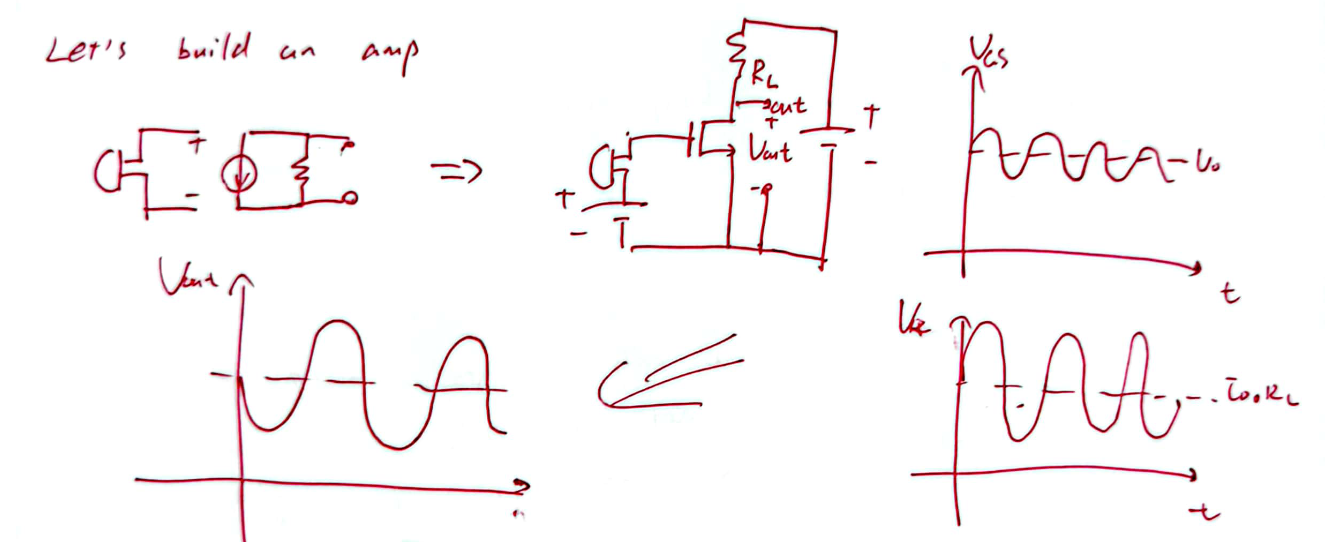 Let's build an amp
+
-
⇒
R_L
out
+
Vout
-
+
-
+
-
V_GS
V₀
t
Vout
I₀·R_L
t